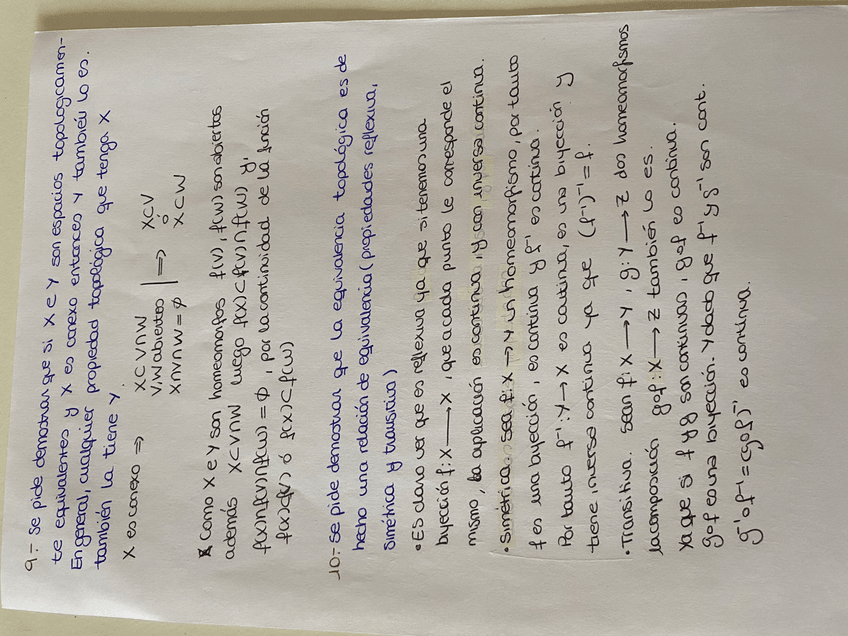 9.- Se pide demostrar que si X e Y son espacios topologicamen-
te equivalentes y X es conexo entonces Y también lo es.
En general, cualquier propiedad topológica que tenga X
también la tiene Y.
X es conexo ⇒ X⊂V∩W
V,W abiertos | ⇒ X⊂V
X∩V∩W=∅ ó
X⊂W
Como X e Y son homeomorfos f(V), f(W) son abiertos
además X⊂V∩W luego f(X)⊂f(V)∩f(W) y,
f(X)∩f(V)∩f(W)=∅, por la continuidad de la función
f(X)⊂f(V) ó f(X)⊂f(W)
10.- Se pide demostrar que la equivalencia topológica es de
hecho una relación de equivalencia (propiedades reflexiva,
simétrica y transitiva)
• Es claro ver que es reflexiva ya que si tenemos una
biyección f:X→X, que a cada punto le corresponde el
mismo, la aplicación es continua, y con inversa continua.
• Simétrica. Sea f:X→Y un homeomorfismo, por tanto
f es una biyección, es continua y f⁻¹ es continua.
Por tanto f⁻¹:Y→X es continua, es una biyección y
tiene inversa continua ya que (f⁻¹)⁻¹=f.
• Transitiva. Sean f:X→Y, g:Y→Z dos homeomorfismos
la composición g∘f:X→Z también lo es.
Ya que si f y g son continuas, g∘f es continua.
g∘f es una biyección. Y dado que f⁻¹ y g⁻¹ son cont.
g⁻¹∘f⁻¹=(g∘f)⁻¹ es continua.